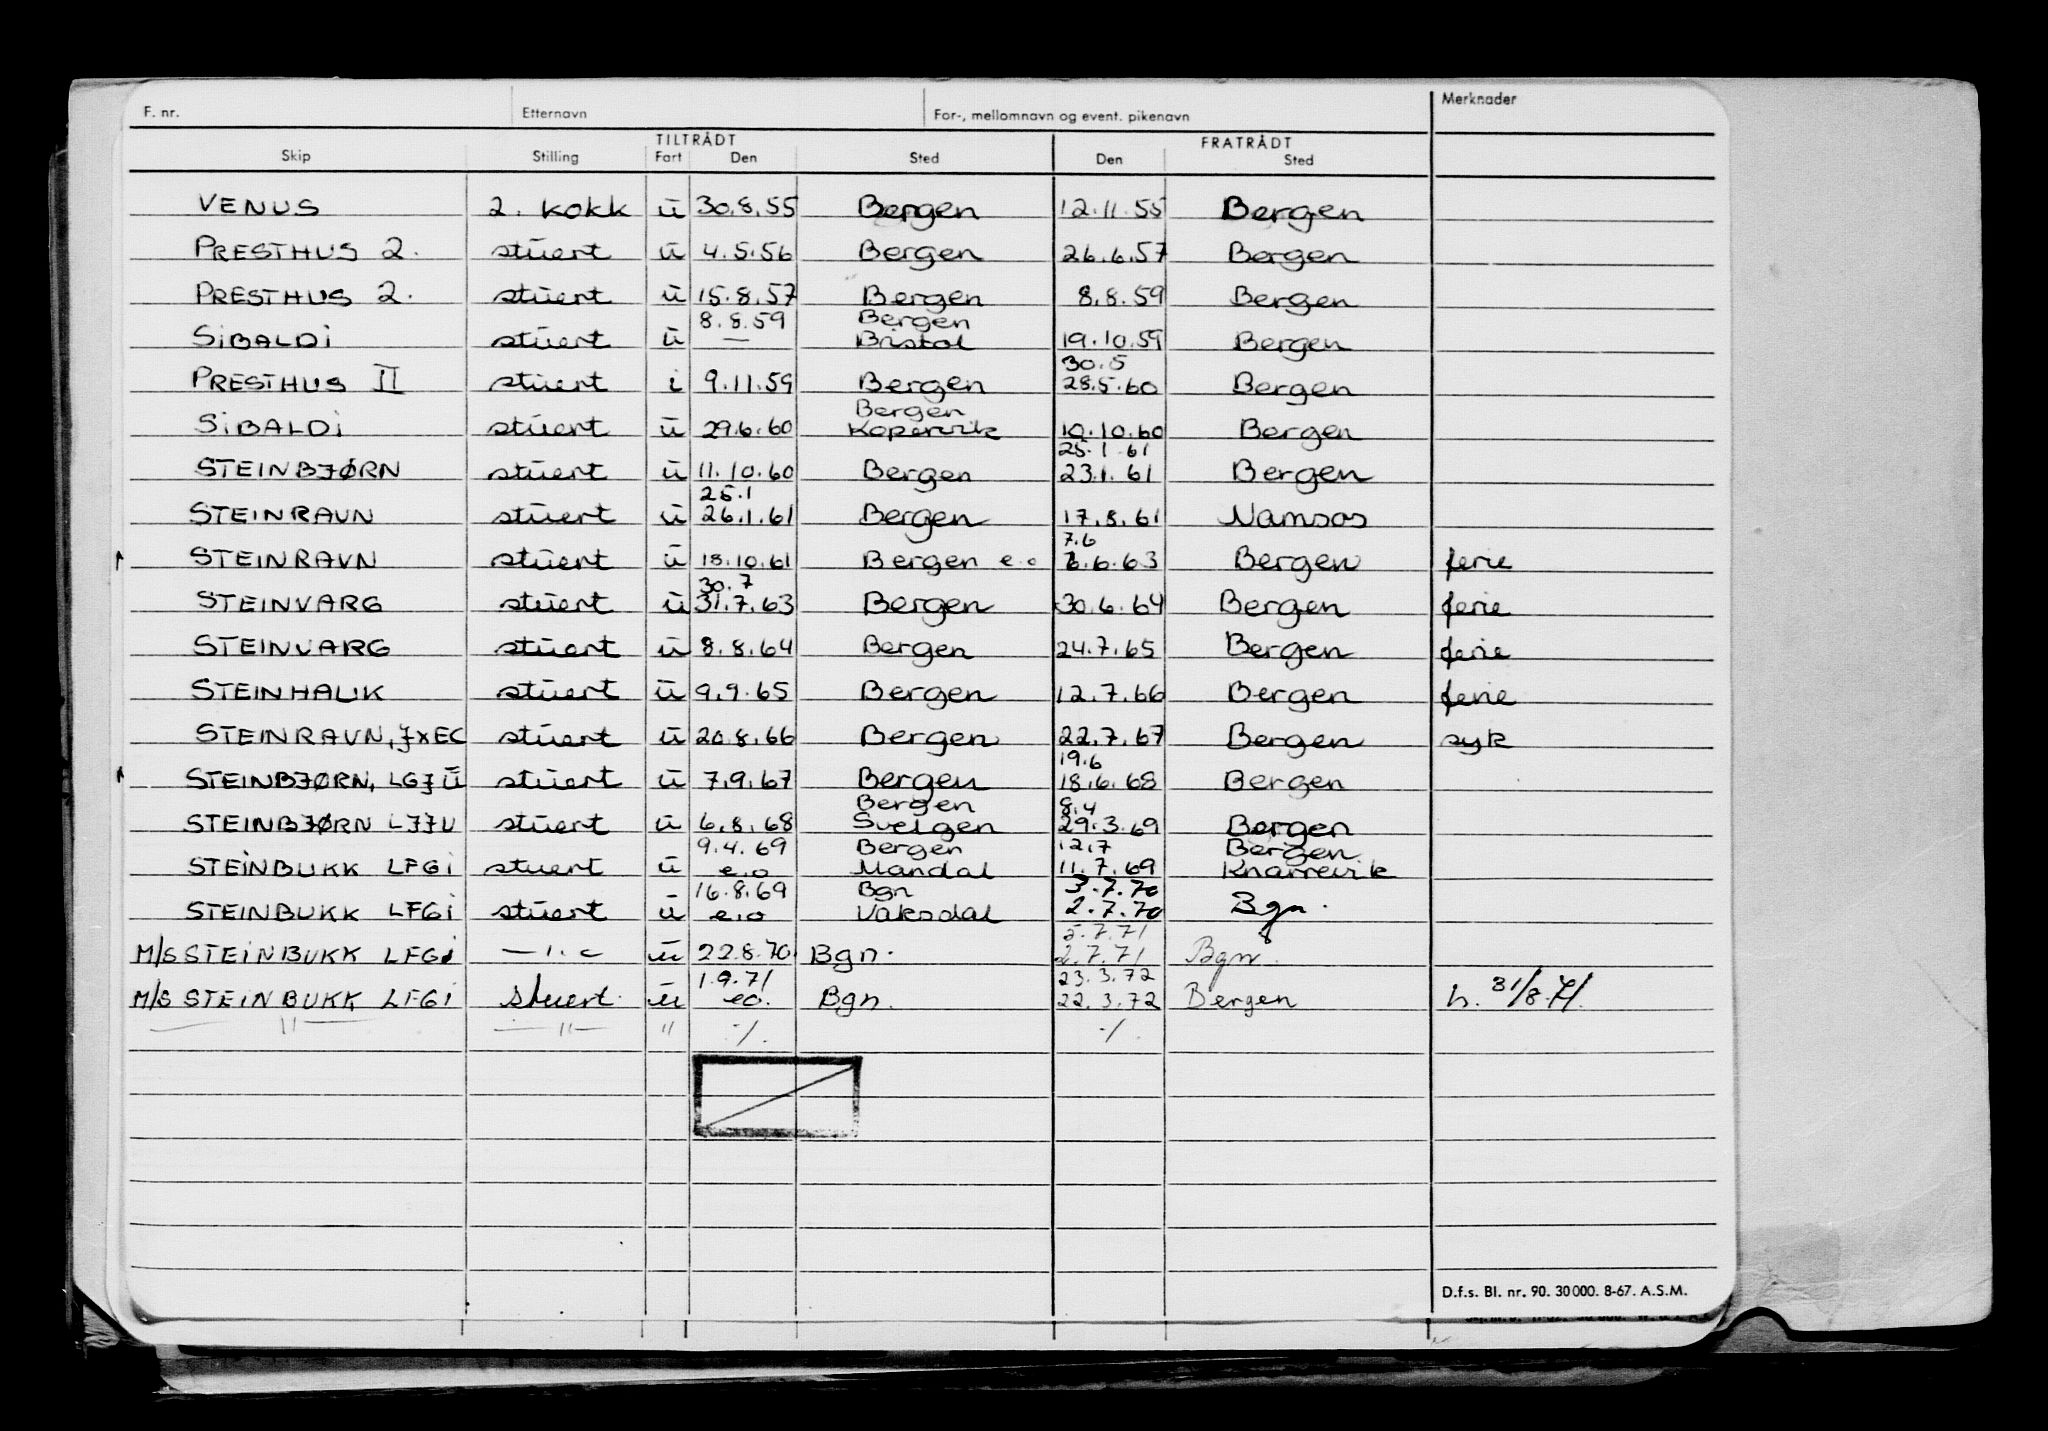 F. nr. Etternavn For-, mellomnavn og event. pikenavn Merknader
TILTRÅDT FRATRÅDT
Skip Stilling Fart Den Sted Den Sted
VENUS 2. kokk ū 30.8.55 Bergen 12.11.55 Bergen
PRESTHUS 2. stūert ū 4.5.56 Bergen 26.6.57 Bergen
PRESTHUS 2. stūert ū 15.8.57 Bergen 8.8.59 Bergen
8.8.59 Bergen
SiBALDi stūert ū — Bristol 19.10.59 Bergen
30.5
PRESTHUS II stūert i 9.11.59 Bergen 28.5.60 Bergen
Bergen
SiBALDi stūert ū 29.6.60 Kopervik 10.10.60 Bergen
25.1.61
STEINBJØRN stūert ū 11.10.60 Bergen 23.1.61 Bergen
25.1
STEINRAVN stūert ū 26.1.61 Bergen 17.8.61 Namsos
7.6
STEINRAVN stūert ū 18.10.61 Bergen e.o 6.6.63 Bergen ferie
30.7
STEINVARG stūert ū 31.7.63 Bergen 30.6.64 Bergen ferie
STEINVARG stūert ū 8.8.64 Bergen 24.7.65 Bergen ferie
STEINHAUK stūert ū 9.9.65 Bergen 12.7.66 Bergen ferie
STEINRAVN, JXEC stūert ū 20.8.66 Bergen 22.7.67 Bergen syk
19.6
STEINBJØRN, LGJŪ stūert ū 7.9.67 Bergen 18.6.68 Bergen
Bergen 8.4
STEINBJØRN LJJU stūert ū 6.8.68 Svelgen 29.3.69 Bergen
9.4.69 Bergen 12.7 Bergen
STEINBUKK LFGi stuert ū e.o Mandal 11.7.69 Knarrevik
16.8.69 Bgn 3.7.70
STEINBUKK LFGi stūert ū e.o Vaksdal 2.7.70 Bgn.
5.7.71
M/S STEINBUKK LFGi ū 22.8.70 Bgn. 2.7.71 Bgn.
1.9.71 23.3.72
M/S STEINBUKK LFGi Stuert. ū eo. Bgn. 22.3.72 Bergen h. 31/8.71.
— " — — " — " ·/. ·/.
D.f.s. Bl. nr. 90. 30000. 8-67. A.S.M.